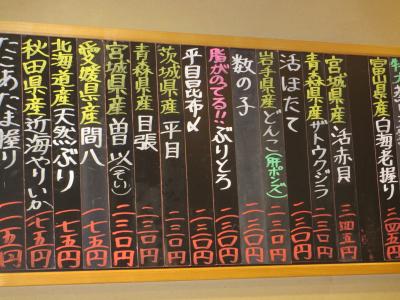 富山県産 白海老握り 二四五円
宮城県産 活赤貝 二四五円
青森県産 ザトウクジラ 二三〇円
活ほたて 二三〇円
岩手県産 どんこ(肝ポンズ) 二三〇円
数の子 二三〇円
脂がのってる!!ぶりとろ 二三〇円
平目昆布〆 二三〇円
茨城県産 平目 二三〇円
青森県産 目張 二三〇円
宮城県産 曽以(そい) 二三〇円
愛媛県産 間八 一七五円
北海道産 天然ぶり 一七五円
秋田県産 近海やりいか 一七五円
たこあたま握り 一一五円